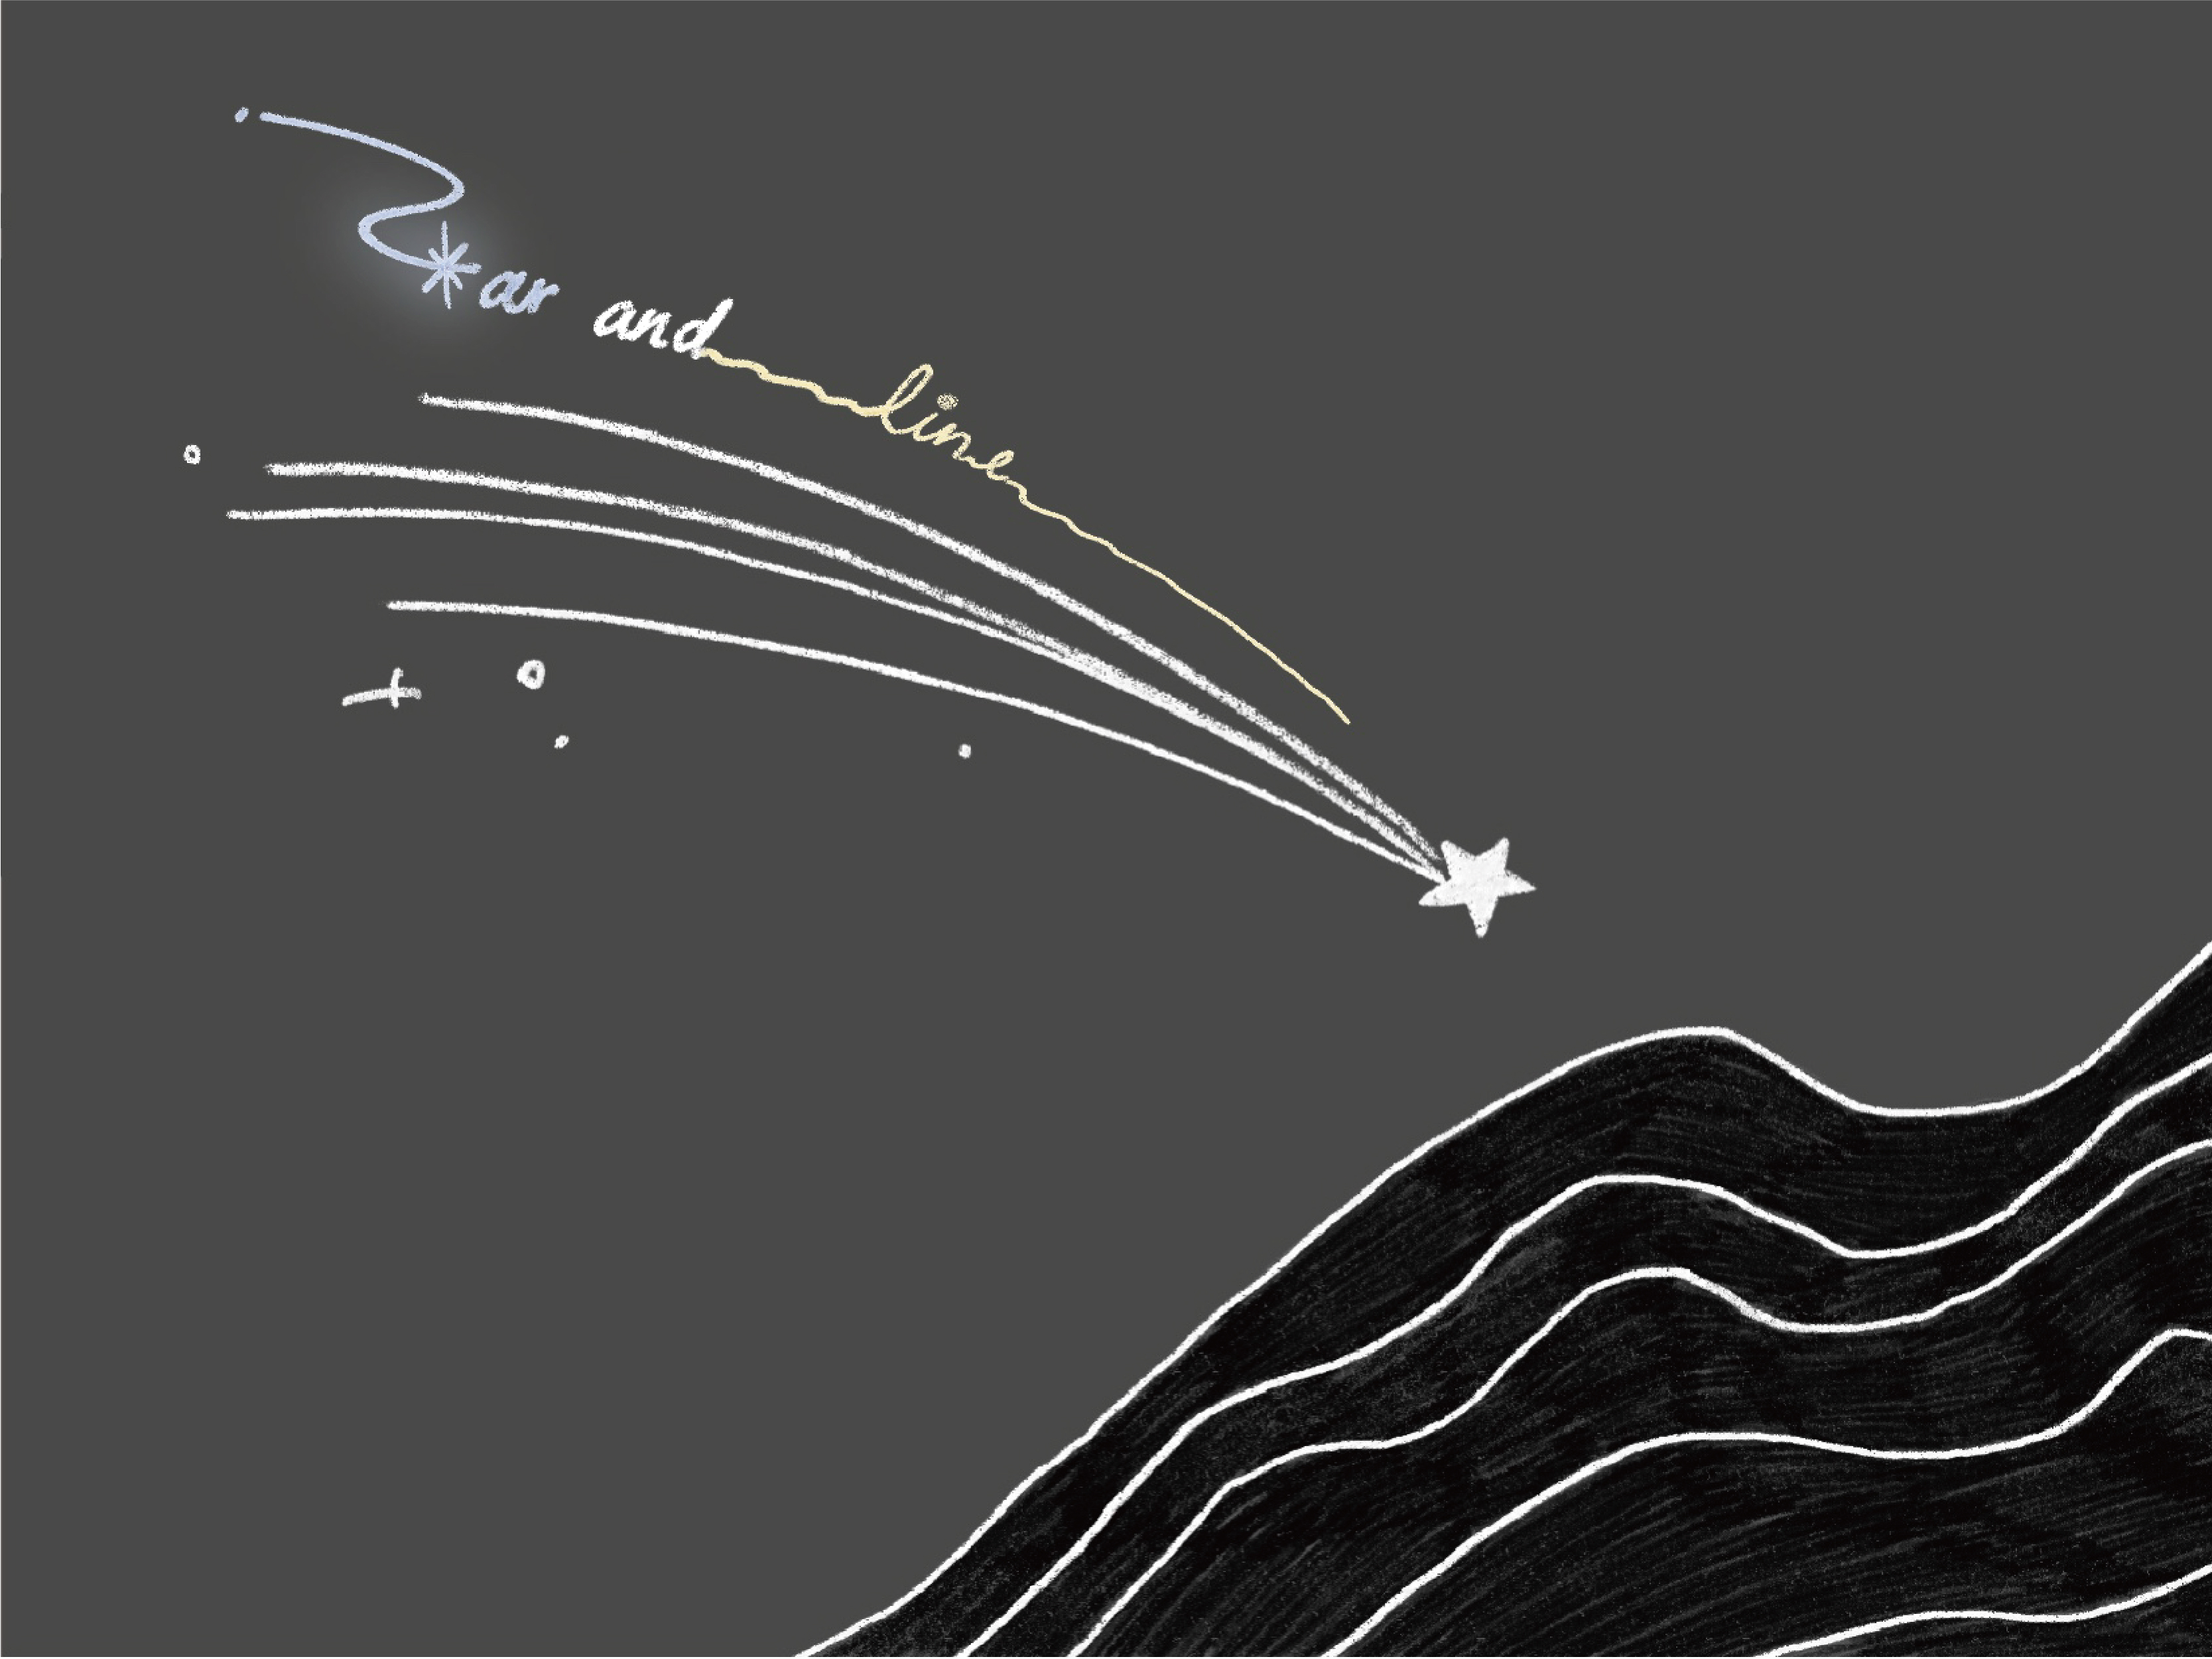 Star and line